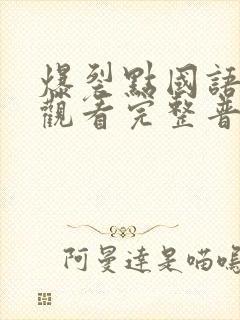 爆裂點國語
觀看完整普
阿曼達是喵嗚